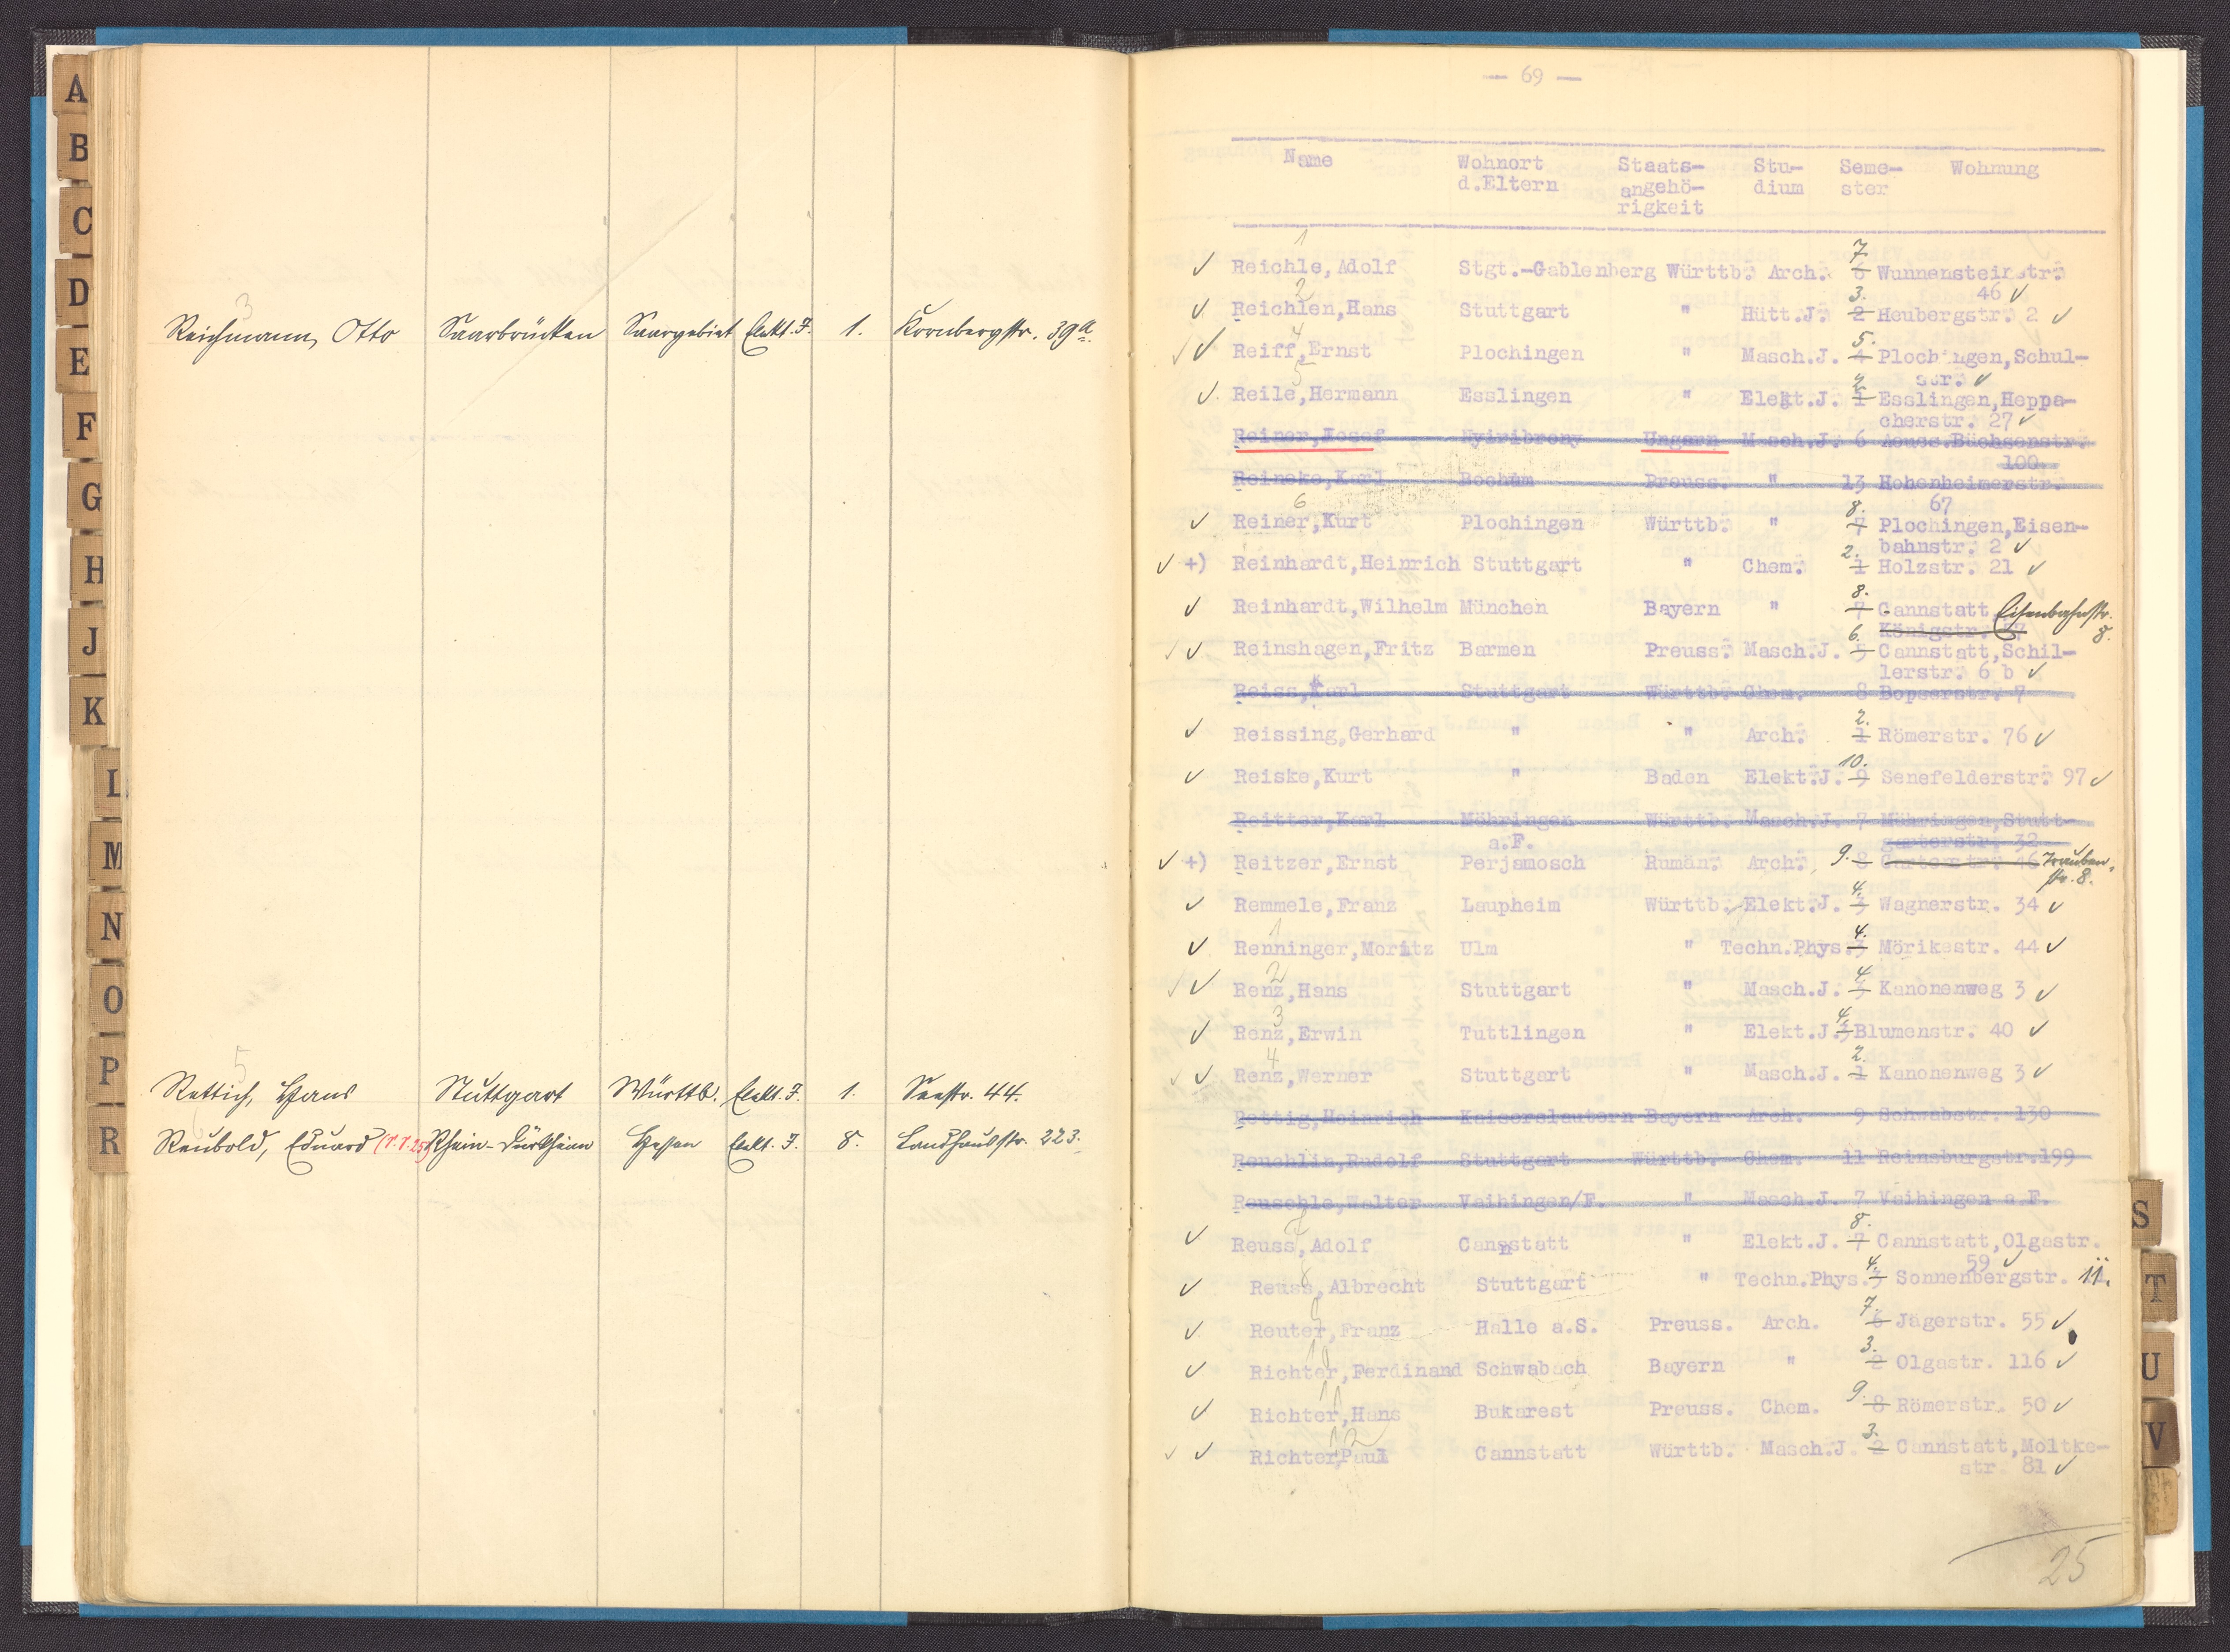 A
B
C
D
E
F
G
H
J
K
L
M
N
O
P
R
3
Reichmann, Otto Saarbrücken Saargebiet Elekt. J. 1. Kornbergstr. 39a.
5
Rettich, Hans Stuttgart Württb. Elekt. J. 1. Seestr. 44.
Reubold, Eduard Rhein-Dürkheim Hessen Elekt. J. 8. Landhausstr. 223.
— 69 —
Name Wohnort Staats- Stu- Seme- Wohnung
d.Eltern angehö- dium ster
rigkeit
1 7.
Reichle, Adolf Stgt.-Gablenberg Württb. Arch. 6 Wunnensteinstr.
2 3. 46
Reichlen, Hans Stuttgart " Hütt.J. 2 Heubergstr. 2
4 5.
Reiff, Ernst Plochingen " Masch.J. 4 Plochingen, Schul-
5 2. str.
Reile, Hermann Esslingen " Elekt.J. 1 Esslingen, Heppa-
cherstr. 27
Reiner, Josef Nyiribrony Ungarn Masch.J. 6 Aeuss.Büchsenstr.
100
Reineke, Karl Bochum Preuss. " 13 Hohenheimerstr.
6 8. 67
Reiner, Kurt Plochingen Württb. " 7 Plochingen, Eisen-
2. bahnstr. 2
+) Reinhardt, Heinrich Stuttgart " Chem. 1 Holzstr. 21
8.
Reinhardt, Wilhelm München Bayern " 7 Cannstatt Eisenbahnstr.
6. Königstr. 57 8.
Reinshagen, Fritz Barmen Preuss. Masch.J. 5 Cannstatt, Schil-
lerstr. 6 b
Reiss, Karl Stuttgart Württb. Chem. 8 Bopserstr. 7
2.
Reissing, Gerhard " " Arch. 1 Römerstr. 76
10.
Reiske, Kurt " Baden Elekt.J. 9 Senefelderstr. 97
Reitter, Karl Möhringen Württb. Masch.J. 7 Möhringen, Stutt-
a.F. garterstr. 32
+) Reitzer, Ernst Perjamosch Rumän. Arch. 9. 8 Gartenstr. 46 Trauben-
4. str. 8.
Remmele, Franz Laupheim Württb. Elekt.J. 3 Wagnerstr. 34
1 4.
Renninger, Moritz Ulm " Techn.Phys. 3 Mörikestr. 44
2 4.
Renz, Hans Stuttgart " Masch.J. 3 Kanonenweg 3
3 4.
Renz, Erwin Tuttlingen " Elekt.J. 3 Blumenstr. 40
4 2.
Renz, Werner Stuttgart " Masch.J. 1 Kanonenweg 3
Rettig, Heinrich Kaiserslautern Bayern Arch. 9 Schwabstr. 130
Reuchlin, Rudolf Stuttgart Württb. Chem. 11 Reinsburgstr. 199
Reuschle, Walter Vaihingen/F. " Masch.J. 7 Vaihingen a.F.
7 8.
Reuss, Adolf Cannstatt " Elekt.J. 7 Cannstatt, Olgastr.
8 4. 59
Reuss, Albrecht Stuttgart " Techn.Phys. 3 Sonnenbergstr. 11.
7.
Reuter, Franz Halle a.S. Preuss. Arch. 6 Jägerstr. 55
10 3.
Richter, Ferdinand Schwabach Bayern " 2 Olgastr. 116
11 9.
Richter, Hans Bukarest Preuss. Chem. 8 Römerstr. 50
12 3.
Richter, Paul Cannstatt Württb. Masch.J. 2 Cannstatt, Moltke-
str. 81
25
S
T
U
V